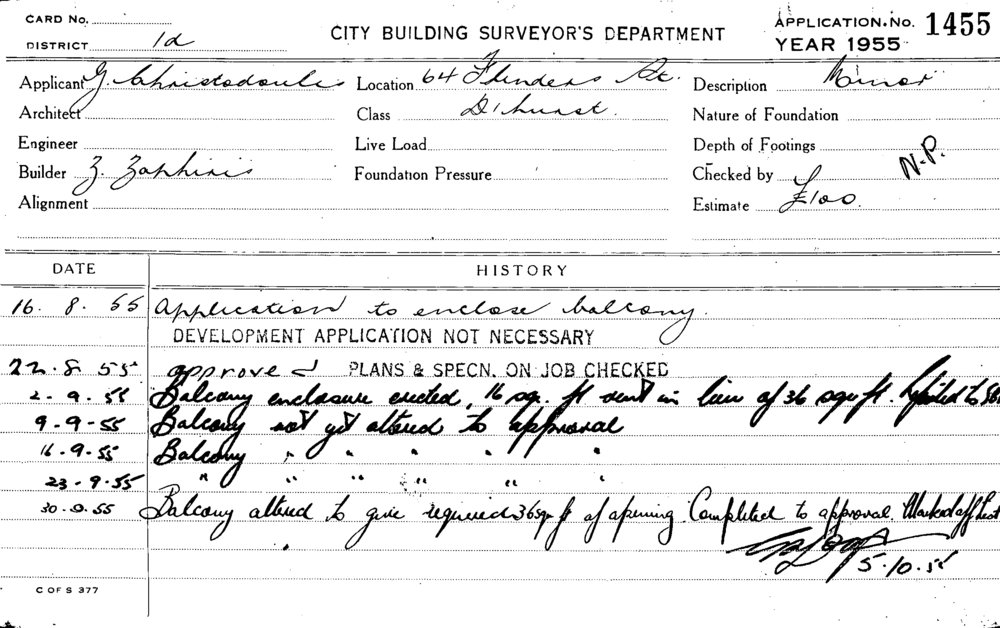 CARD No.
DISTRICT 1d
CITY BUILDING SURVEYOR'S DEPARTMENT
APPLICATION. No. 1455
YEAR 1955
Applicant G. Christodoulis Location 64 Flinders St. Description Minor
Architect Class D'hurst. Nature of Foundation
Engineer Live Load Depth of Footings
Builder Z. Zaphiris Foundation Pressure Checked by N.P.
Alignment Estimate £100.
DATE HISTORY
16. 8. 55 Application to enclose balcony.
DEVELOPMENT APPLICATION NOT NECESSARY
22.8 55 approved PLANS & SPECN. ON JOB CHECKED
2. 9. 55 Balcony enclosure erected, 16 sq. ft vent in lieu of 36 sqr ft. to
9-9-55 Balcony not yet altered to approval
16.9.55 Balcony " " " " "
23.9.55 " " " " " "
30.9.55 Balcony altered to give required 36 sq ft of opening. Completed to approval. Marked off
5.10.55
C OF S 377